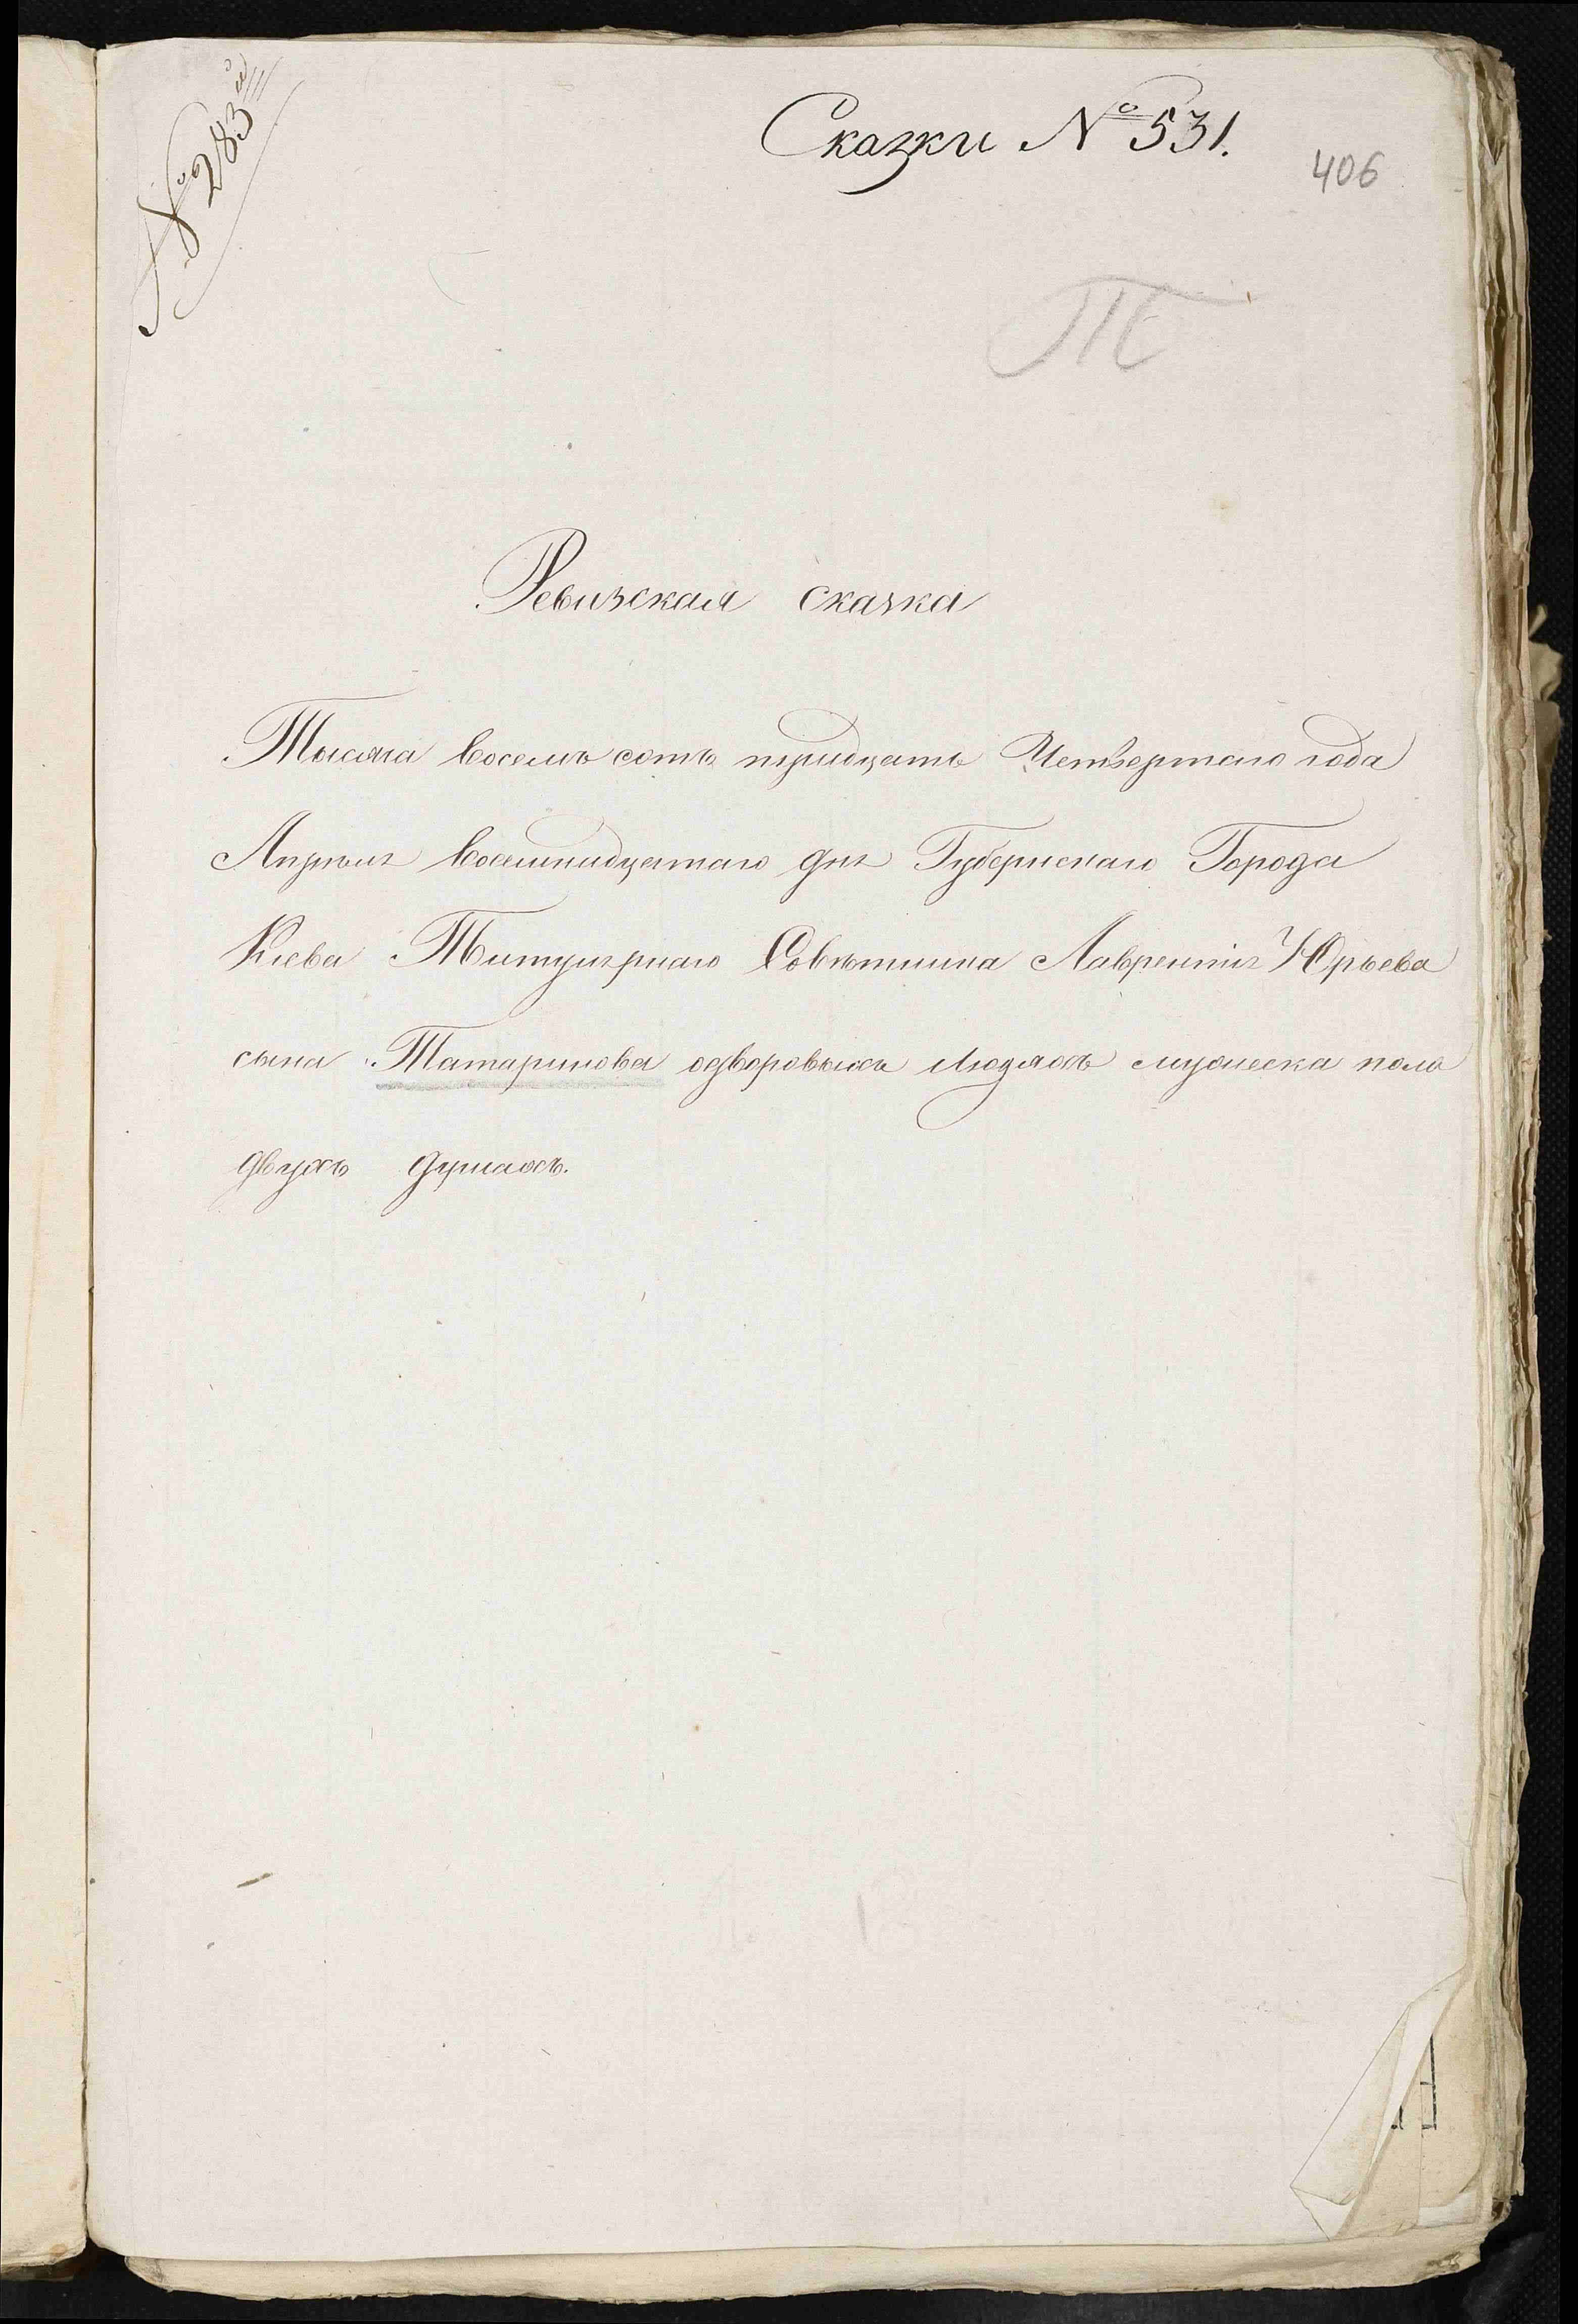 № 283й
Сказки № 531.
406
Ревизская сказка
Тысяча восемь сотъ тридцать Четвертаго года
Апрѣля восемнадцатаго дня Губернскаго Города
Кіева Титулярнаго Совѣтника Лаврентія Юрьева
сына Татаринова одворовыхъ людяхъ мужеска пола
двухъ душахъ.